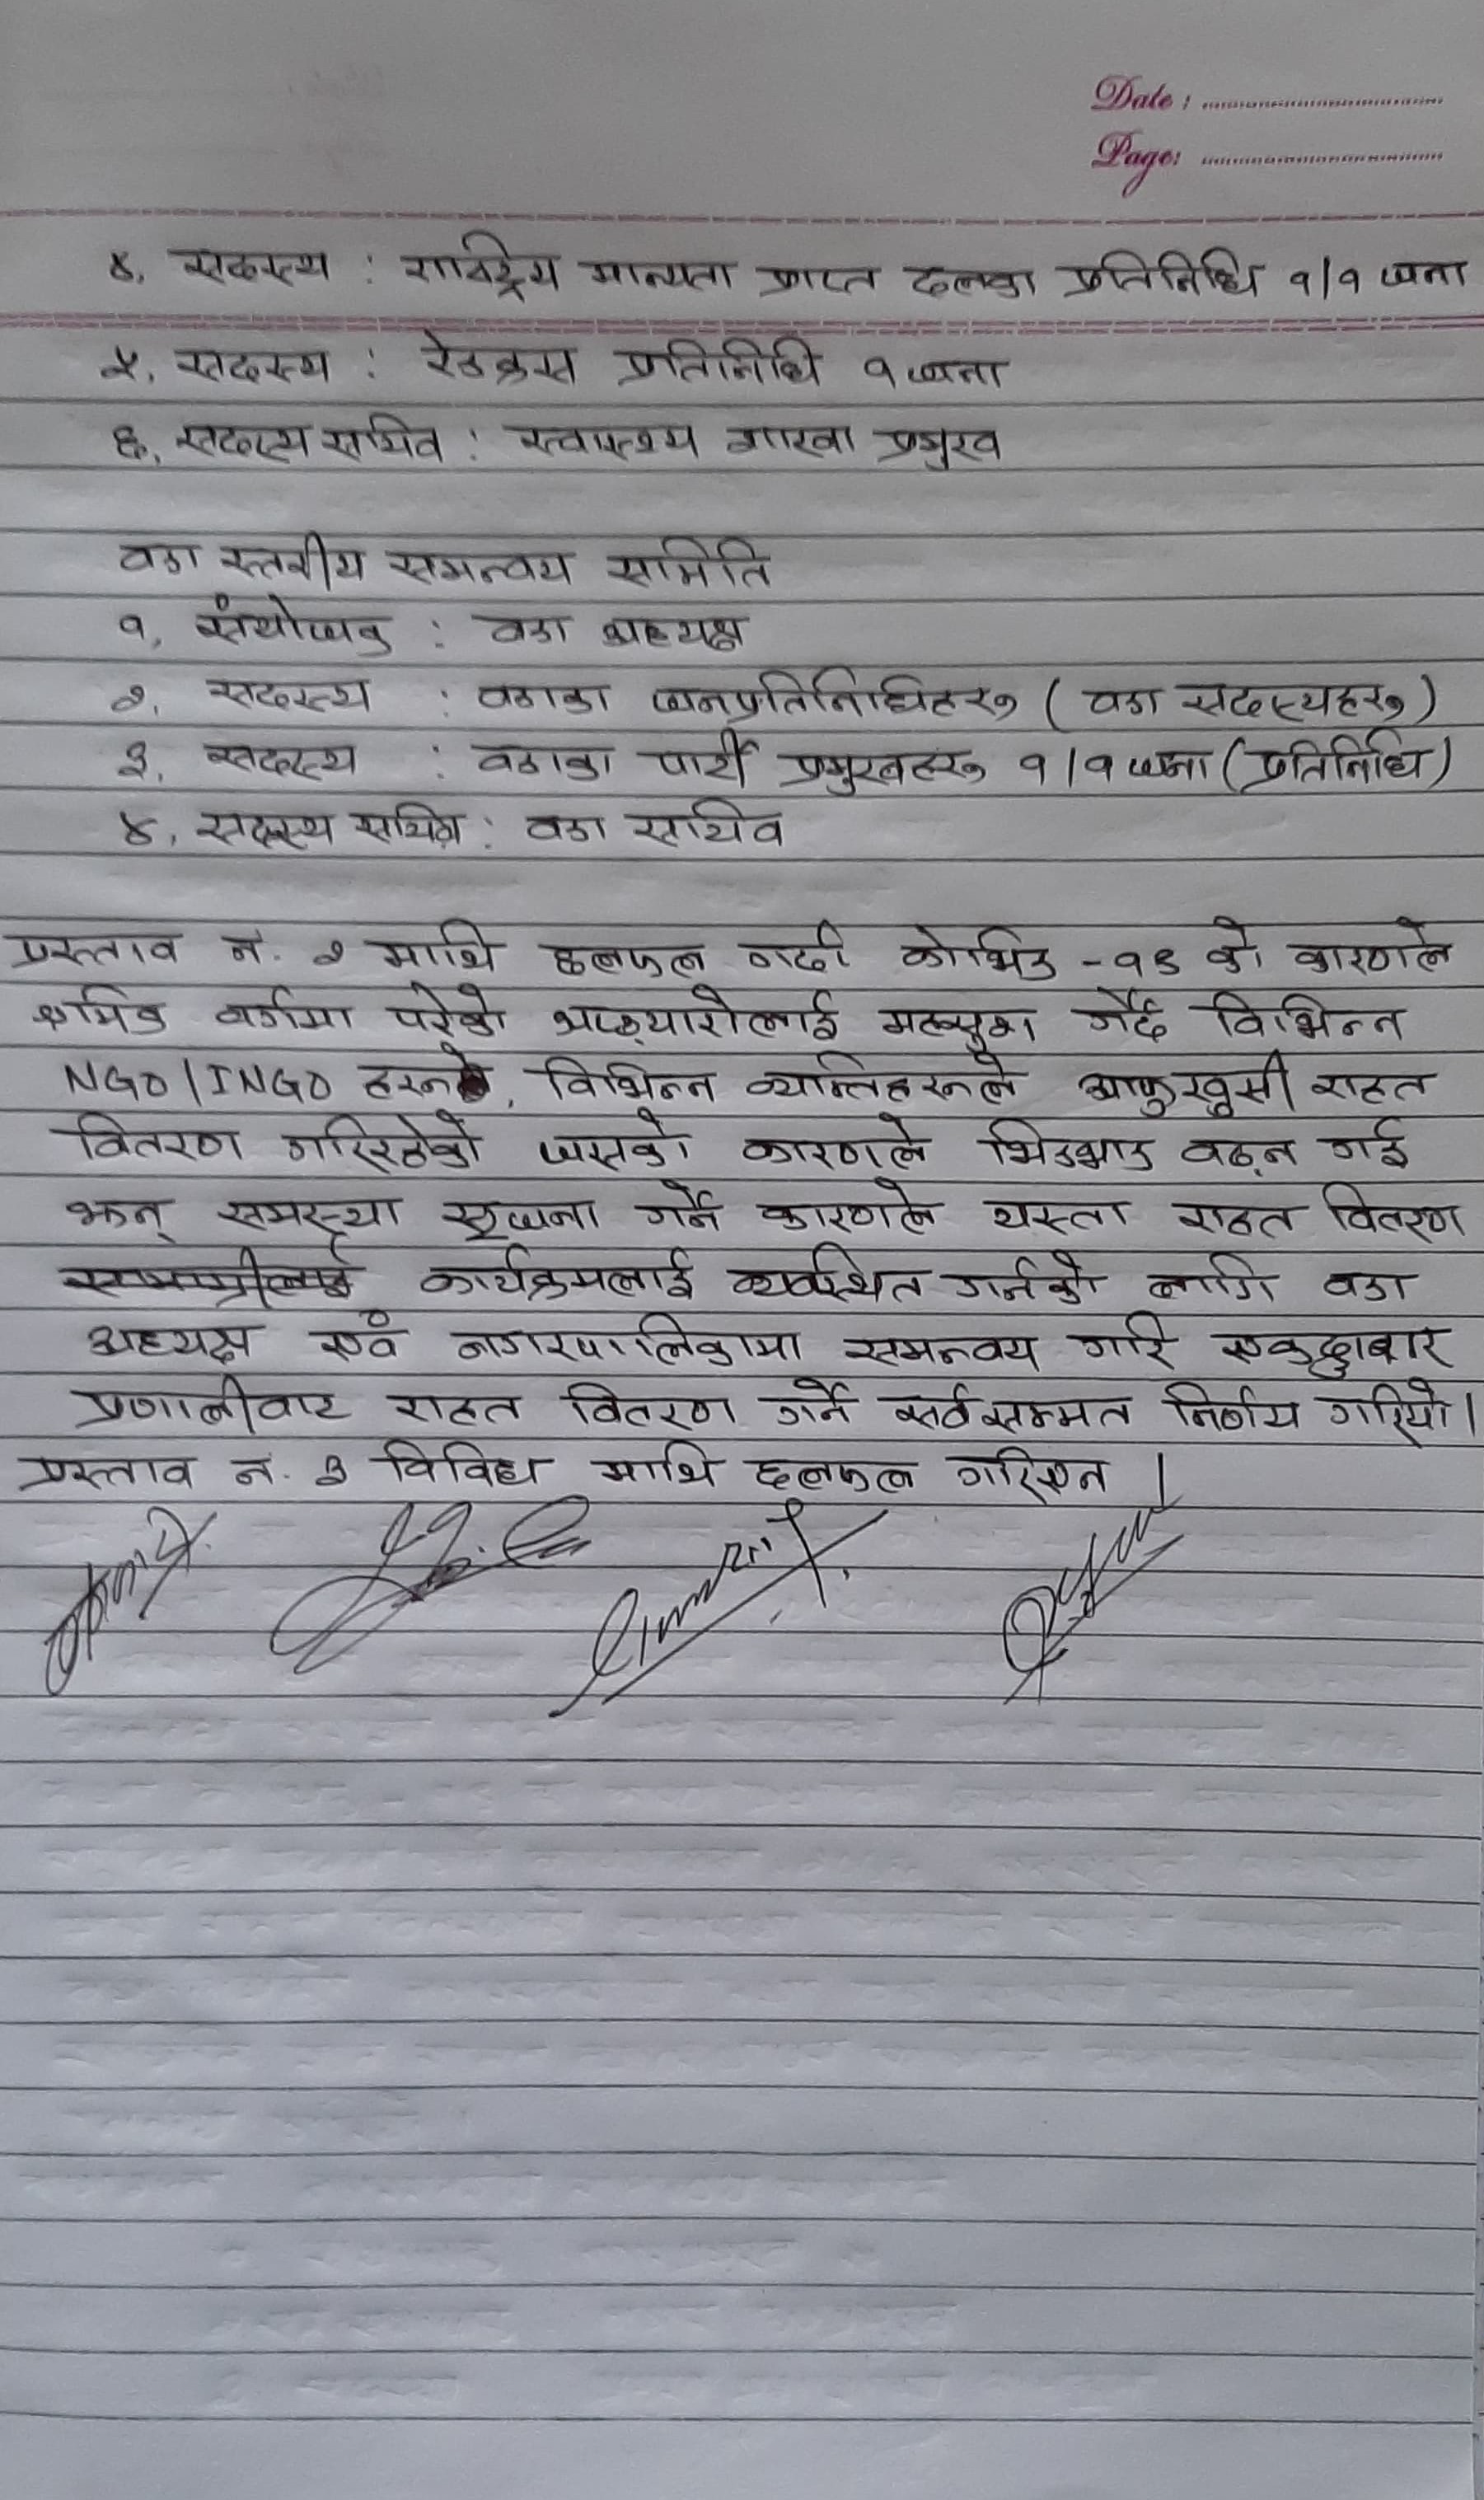 Date :
Page:
४. सदस्य : राष्ट्रिय मान्यता प्राप्त दलका प्रतिनिधि १/१ जना
५. सदस्य : रेडक्रस प्रतिनिधि १ जना
६. सदस्य सचिव : स्वास्थ्य शाखा प्रमुख
वडा स्तरीय समन्वय समिति
१. संयोजक : वडा अध्यक्ष
२. सदस्य : वडाका जनप्रतिनिधिहरु (वडा सदस्यहरु)
३. सदस्य : वडाका पार्टी प्रमुखहरु १/१ जना (प्रतिनिधि)
४. सदस्य सचिव : वडा सचिव
प्रस्ताव नं. २ माथि छलफल गर्दा कोभिड -१९ को कारणले
श्रमिक वर्गमा परेको अप्ठ्यारोलाई मध्यनजर गर्दै विभिन्न
NGO/INGO हरुले, विभिन्न व्यक्तिहरुले आफुखुसी राहत
वितरण गरिरहेको जसको कारणले भिडभाड बढ्न गई
झन् समस्या सृजना गर्ने कारणले यस्ता राहत वितरण
कार्यक्रमलाई व्यवस्थित गर्नको लागि वडा
अध्यक्ष एवं नगरपालिकामा समन्वय गरि एकद्धार
प्रणालीवाट राहत वितरण गर्ने सर्वसम्मत निर्णय गरियो।
प्रस्ताव नं. ३ विविध माथि छलफल गरिएन।